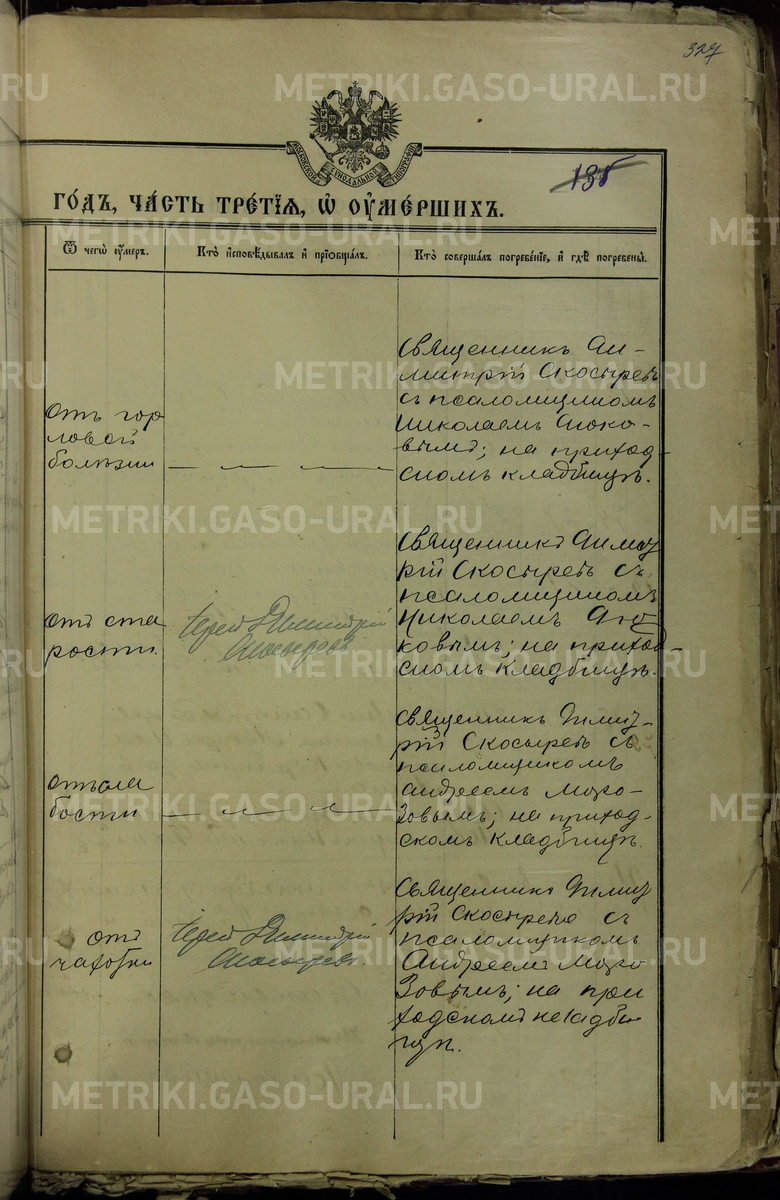 327
METRIKI.GASO-URAL.RU
135
ГО́ДЪ, ЧА́СТЬ ТРЕ́ТІѦ, Ѡ҆ ОУ҆МЕ́РШИХЪ.
Ѿ чегѡ̀ оу҆́меръ.
Кто̀ и҆сповѣ́дывалъ и҆ прїѡбща́лъ.
Кто̀ соверша́лъ погребе́нїе, и҆ гдѣ̀ погребены̀.
отъ гор
ловой
болѣзни
Священникъ Ди-
митрій Скосыревъ
съ псаломщикомъ
Николаемъ
вымъ; на приход-
скомъ кладбищѣ.
отъ ста
рости.
Іерей Димитрій
Скосыревъ
Священникъ Димит
рій Скосыревъ съ
псаломщикомъ
Николаемъ
ковымъ; на приход-
скомъ кладбищѣ.
отъ сла
бости
Священникъ Димит-
рій Скосыревъ съ
псаломщикомъ
Андреемъ Моро-
зовымъ; на приход-
скомъ кладбищѣ.
отъ
чахотки
Іерей Димитрій
Скосыревъ
Священникъ Димит
рій Скосыревъ съ
псаломщикомъ
Андреемъ Моро
зовымъ; на при
ходскомъ кладби
щѣ.